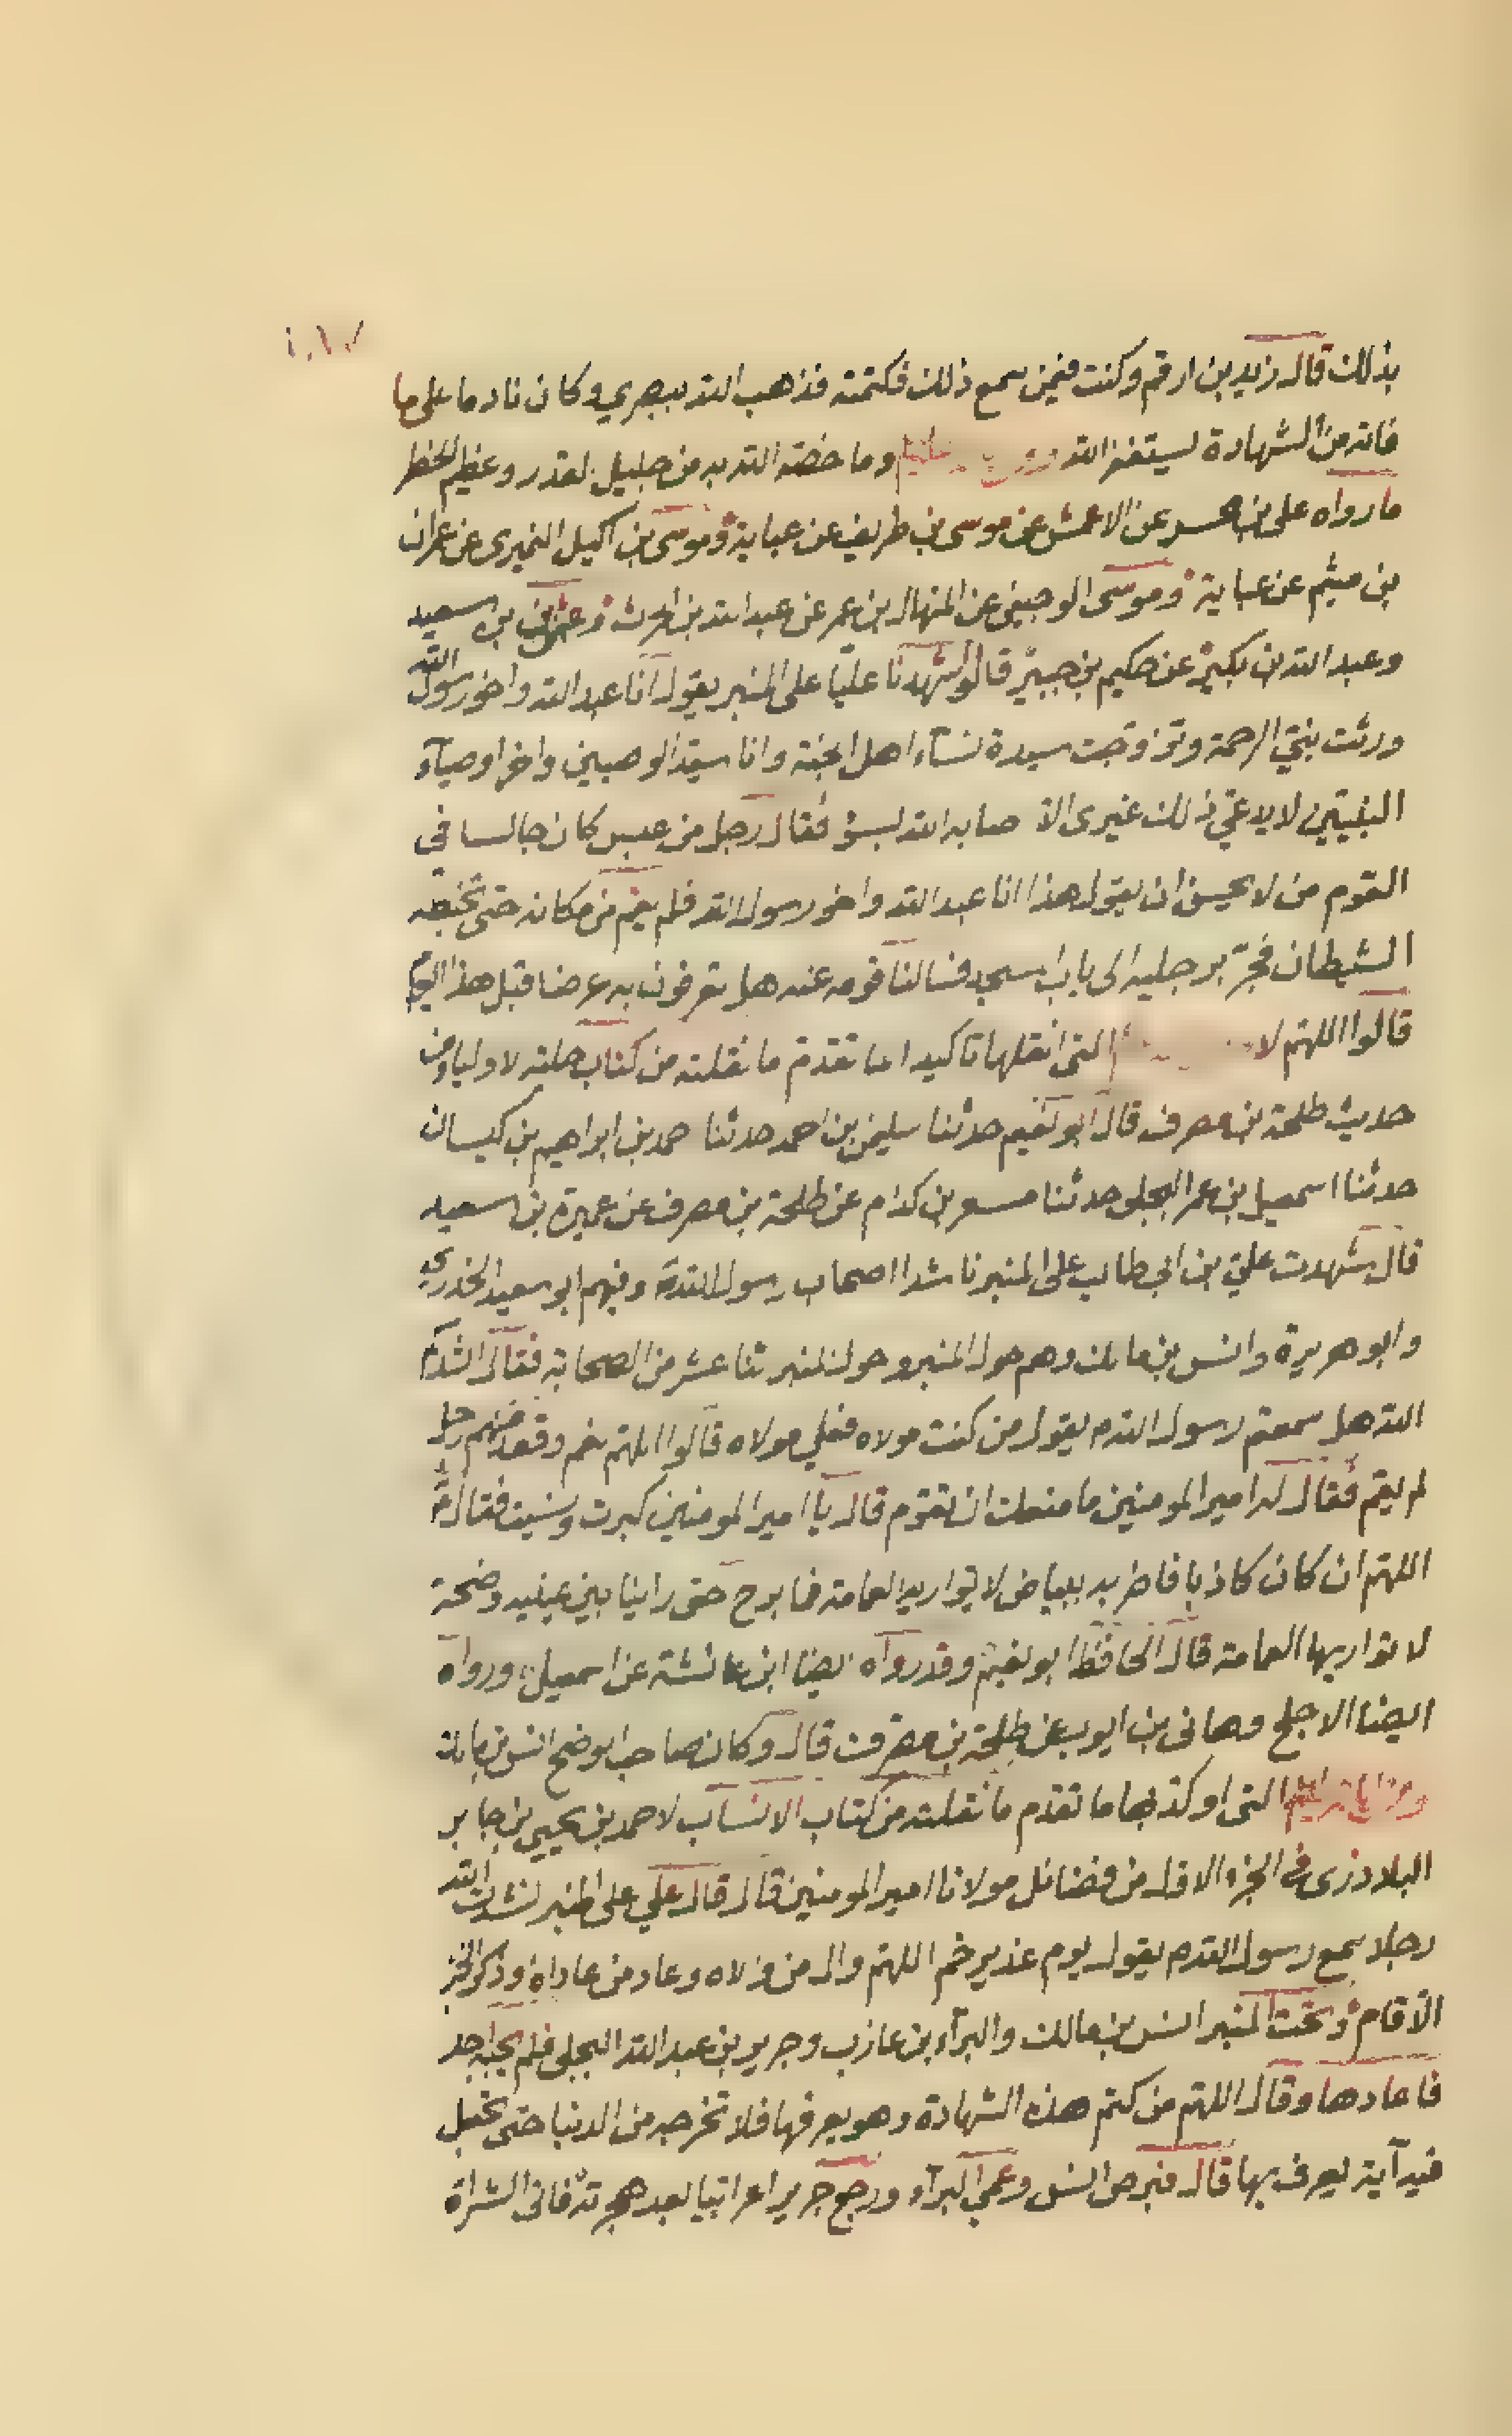 بذلك قال زيد بن ارقم وكنت فيمن سمع ذلك فكتمته فذهب الله ببصري وكان نادما على ما
فاته من الشهادة ليستغفر الله وما خصّه الله به من جليل لقدر وعظيم الخطر
ما رواه على بن عن الاعمش عن موسى بن طريف عن عباية وموسى بن اكيل النميرى عن عمران
بن ميثم عن عباية وموسى الوجيهى عن المنهال بن عمر عن عبد الله بن الحرث وعثمن بن سعيد
وعبد الله بن بكير عن حكيم بن جبير قالوا شهدنا عليّا على المنبر يقول انا عبد الله واخو رسول الله
ورثت بنيّ الرحمة وتزوّجت سيدة نسآء اهل الجنة وانا سيّد الوصيين واخر اوصيآء
النبيّين لا يدعيّ ذلك غيرى الا صابه الله بسوء فقال رجل من عبس كان جالسا في
القوم من لا يحسن ان يقول هذا انا عبد الله واخو رسول الله فلم يقم من مكانه حتى تخبطه
الشيطان فجرّ برجليه الى باب اسمجد فسالنا قومه عنه هل تعرفون به عرضا قبل هذا اليوم
قالوا اللهّم لا التى انقلها تاكيدا لما تقدّم ما نقلته من كتاب حلية لاولياء من
حديث طلحة بن مصرف قال ابو نعيم حدثنا سليمن بن احمد حدثنا حمد بن ابراهيم بن كيسان
حدثنا اسمعيل بن عمر البجلى حدثنا مسعر بن كدام عن طلحة بن مصرف عن عميرة بن سعيد
قال شهدت عليّ بن ابي طالب على المنبر ناشدا اصحاب رسول الله وفيهم ابو سعيد الخدري
وابو هريرة وانس بن مالك وهم حول المنبر وحول لمنبر ثنا عشر من الصحابة فقال انشدكم
الله هل سمعتم رسول الله م يقول من كنت مولاه فعلي مولاه قالوا اللهّم نعم وقعد منهم رجل
لم يقم فقال له امير المومنين ما منعك ان تقوّم قال يا امير المومنين كبرت ونسيت فقال
اللهّم ان كان كاذبا فاضربه ببياض لا تواريه العمامة فما برح حتى راينا بين عينيه وضحة
لا تواريها العمامة قال الحافظ ابو نعيم وقد رواه ايضا ابن عائشة عن اسمعيل ورواه
ايضا الاجلح وهانى بن ايوب عن طلحة بن مصرّف قال وكان صاحب لوضح انس بن مالك
التى اوكد بها ما تقدّم ما نقلته من كتاب الانساب لاحمد بن يحيى بن جابر
البلاذرى فى الجزء الاوّل من فضائل مولانا امير المومنين قال قال علي على المنبر نشدت الله
رجلا سمع رسول الله م يقول يوم غدير خم اللهّم وال من والاه وعاد من عاداه وذكر الخبر
الّا قام وتحت المنبر انس بن مالك والبرآء بن عازب وجرير بن عبد الله البجلى فلم يجبه احد
فاعادها وقال اللهّم من كتم هذه الشهادة وهو يعرفها فلا تخرجه من الدنيا حتى تجعل
فيه آية يعرف بها قال فبرص انس وعمي البرآء ورجع جرير اعرابيا بعد هجرته فاتى الشراة